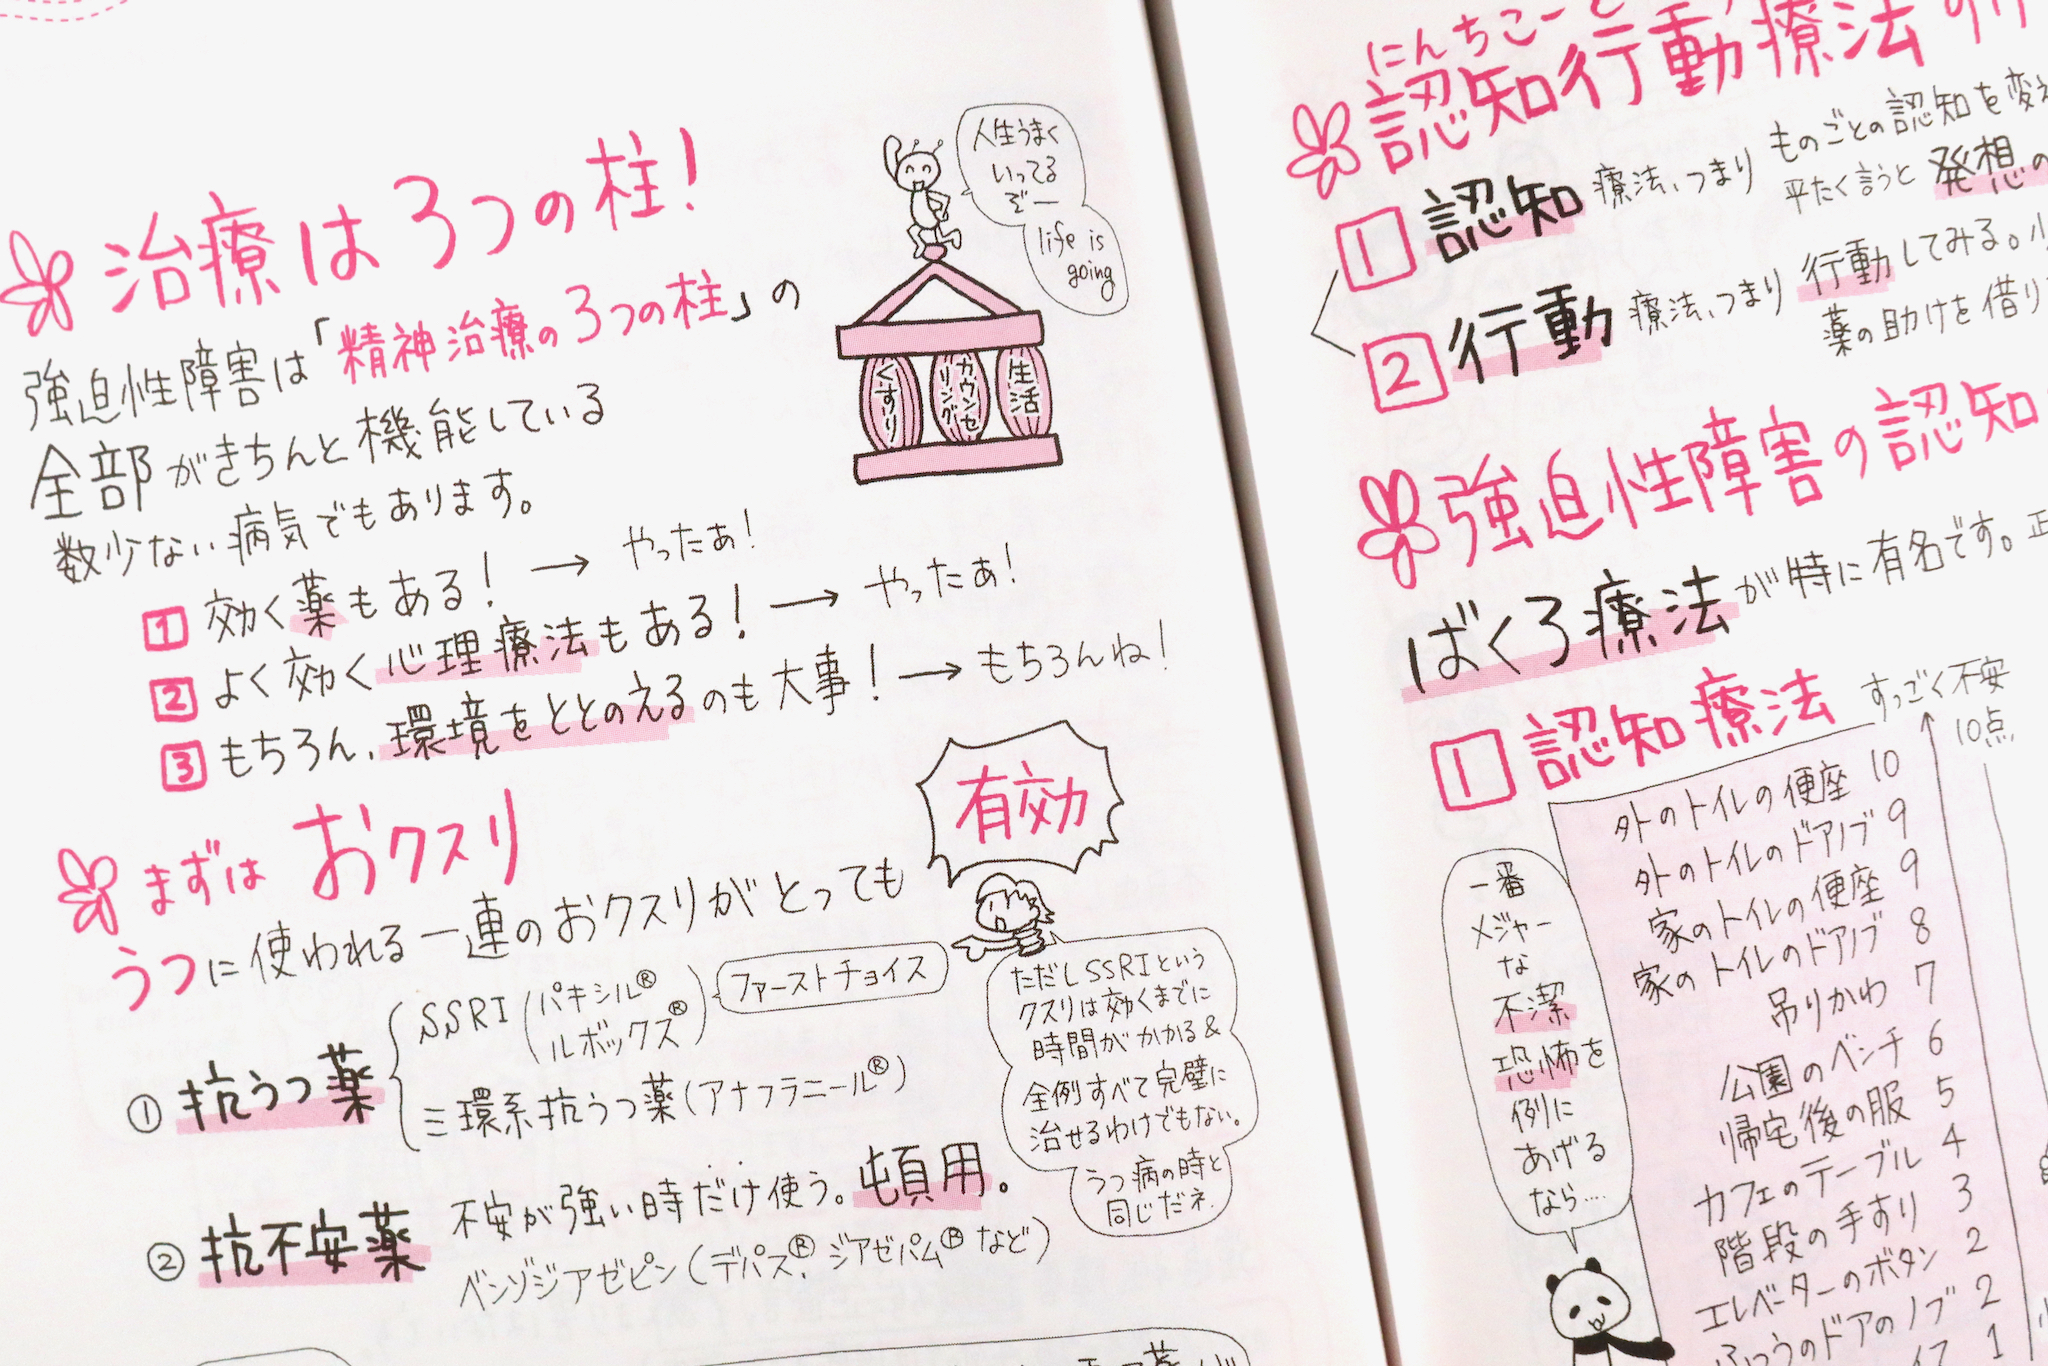 治療は3つの柱!
強迫性障害は「精神治療の3つの柱」の
全部がきちんと機能している
数少ない病気でもあります。
1 効く薬もある! → やったぁ!
2 よく効く心理療法もある! → やったぁ!
3 もちろん、環境をととのえるのも大事! → もちろんね!
人生うまく
いってる
ぞー
life is
going
くすり
カウンセ
リング
生活
まずはおクスリ
うつに使われる一連のおクスリがとっても
有効
① 抗うつ薬
SSRI(パキシル®
ルボックス®)
ファーストチョイス
三環系抗うつ薬(アナフラニール®)
② 抗不安薬
不安が強い時だけ使う。頓用。
ベンゾジアゼピン(デパス®、ジアゼパム®など)
ただしSSRIという
クスリは効くまでに
時間がかかる&
全例すべて完璧に
治せるわけでもない。
うつ病の時と
同じだネ
にんちこーど
認知行動療法の
1 認知療法、つまり
ものごとの認知を変
平たく言うと発想の
2 行動療法、つまり行動してみる。
薬の助けを借り
強迫性障害の認知
ばくろ療法が特に有名です。正
1 認知療法
すっごく不安
10点
外のトイレの便座 10
外のトイレのドアノブ 9
家のトイレの便座 9
家のトイレのドアノブ 8
吊りかわ 7
公園のベンチ 6
帰宅後の服 5
カフェのテーブル 4
階段の手すり 3
エレベーターのボタン 2
ふつうのドアのノブ 2
1
一番
メジャー
な
不潔
恐怖を
例に
あげる
なら…